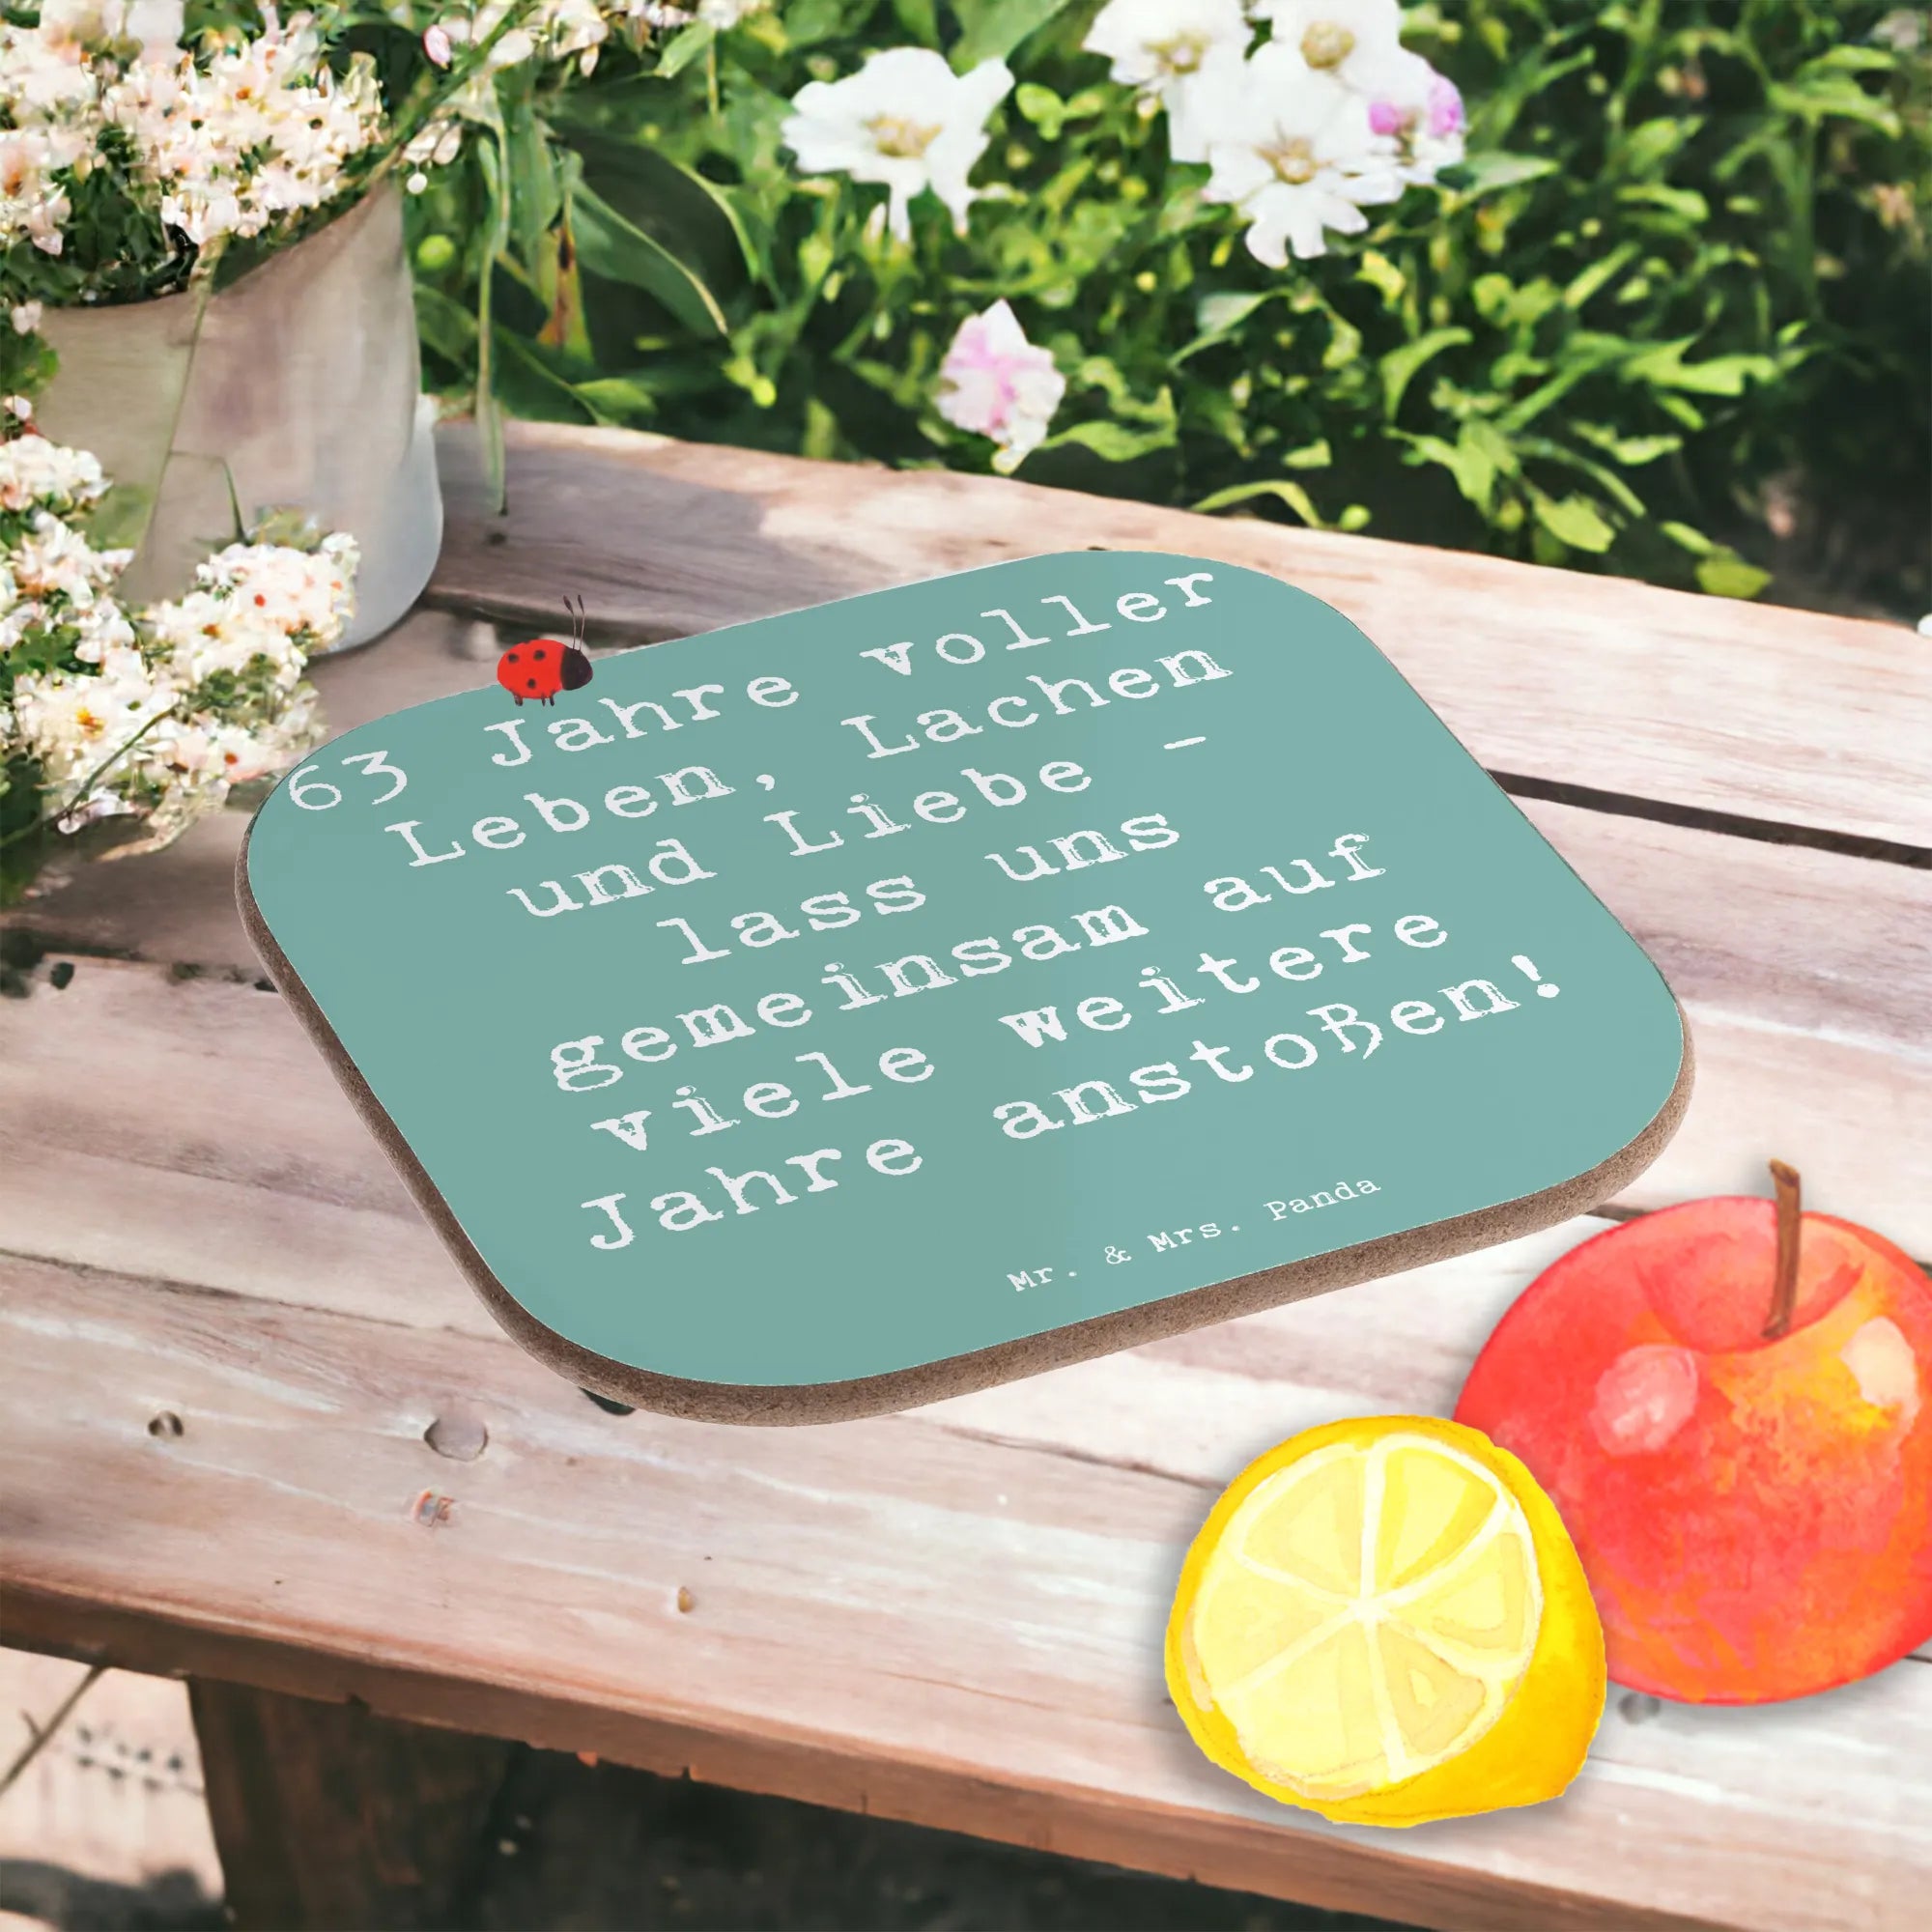 63 Jahre voller
Leben, Lachen
und Liebe -
lass uns
gemeinsam auf
viele weitere
Jahre anstoßen!
Mr. & Mrs. Panda